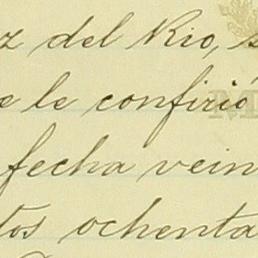 z del Rio, s
e le confirió
fecha vein
tos ochenta